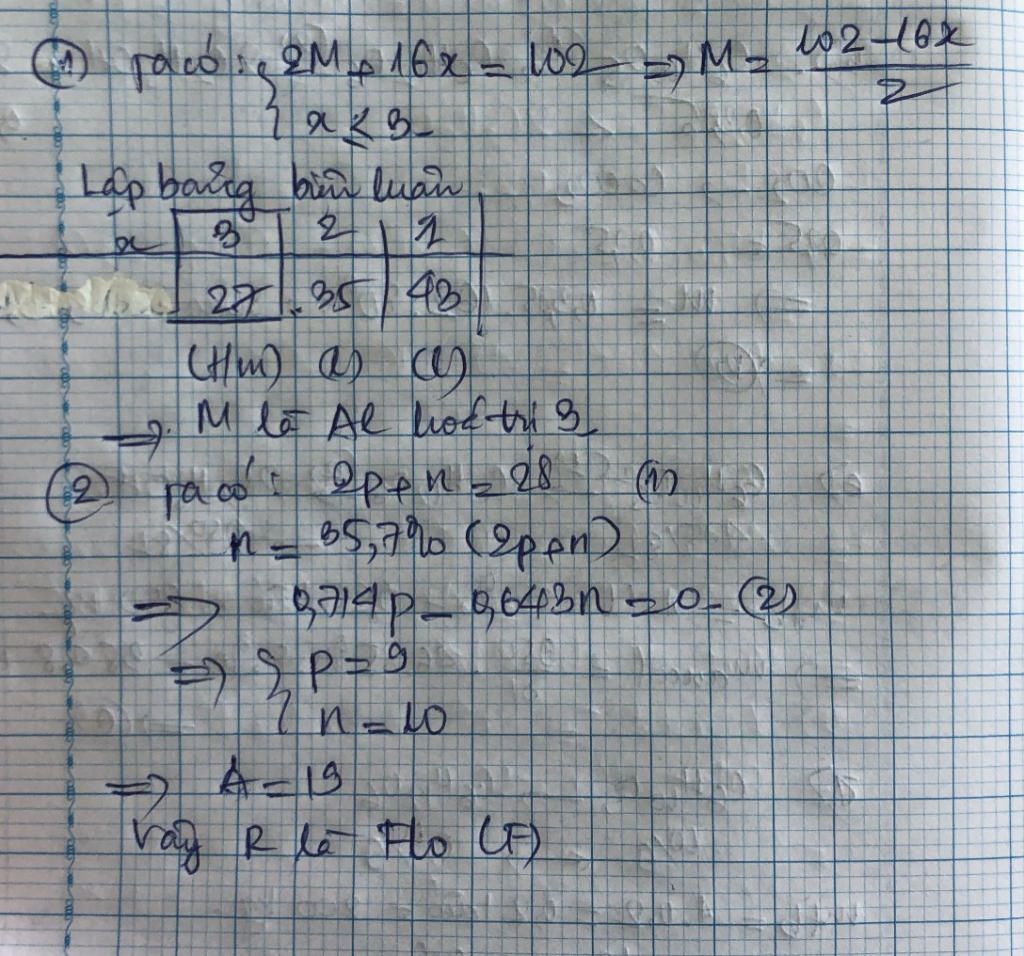 ① Ta có: { 2M + 16x = 102 => M = (102-16x)/2
x ≤ 3
Lập bảng biện luận
x 3 2 1
27 35 43
(t/m) (l) (l)
=> M là Al hoá trị 3
② Ta có: 2p+n = 28 (1)
n = 35,7% (2p+n)
=> 0,714p - 0,643n = 0 (2)
=> { p = 9
n = 10
=> A = 19
Vậy R là Flo (F)